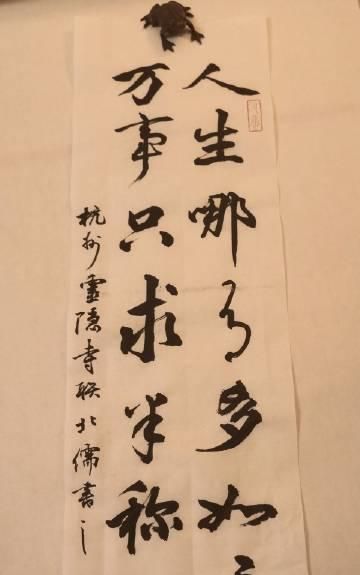 人生哪能多如
万事只求半称
杭州靈隐寺联北儒書之